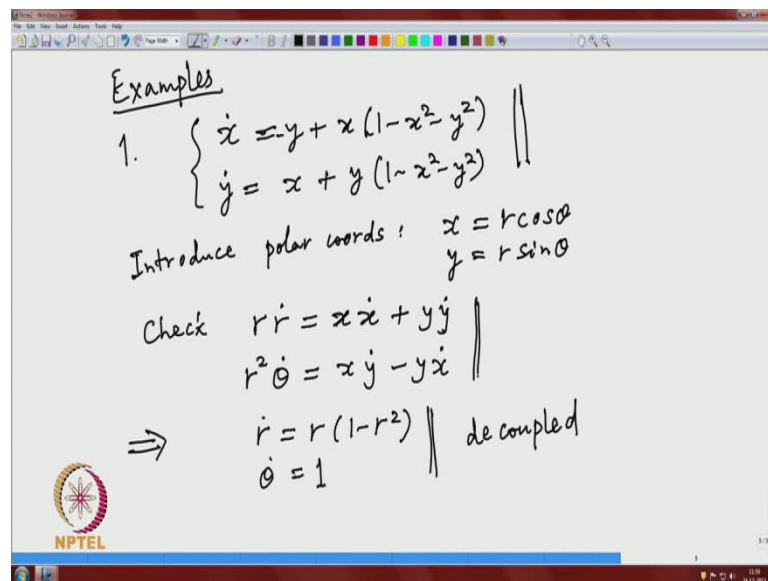 Note2 - Windows Journal
File Edit View Insert Actions Tools Help
Page Width
B I
Examples
1. { ẋ = -y + x (1-x²-y²)
ẏ = x + y (1-x²-y²)
Introduce polar coords : x = r cosθ
y = r sinθ
Check r ṙ = x ẋ + y ẏ
r² θ̇ = x ẏ - y ẋ
⇒ ṙ = r (1-r²) decoupled
θ̇ = 1
NPTEL
9
11:59